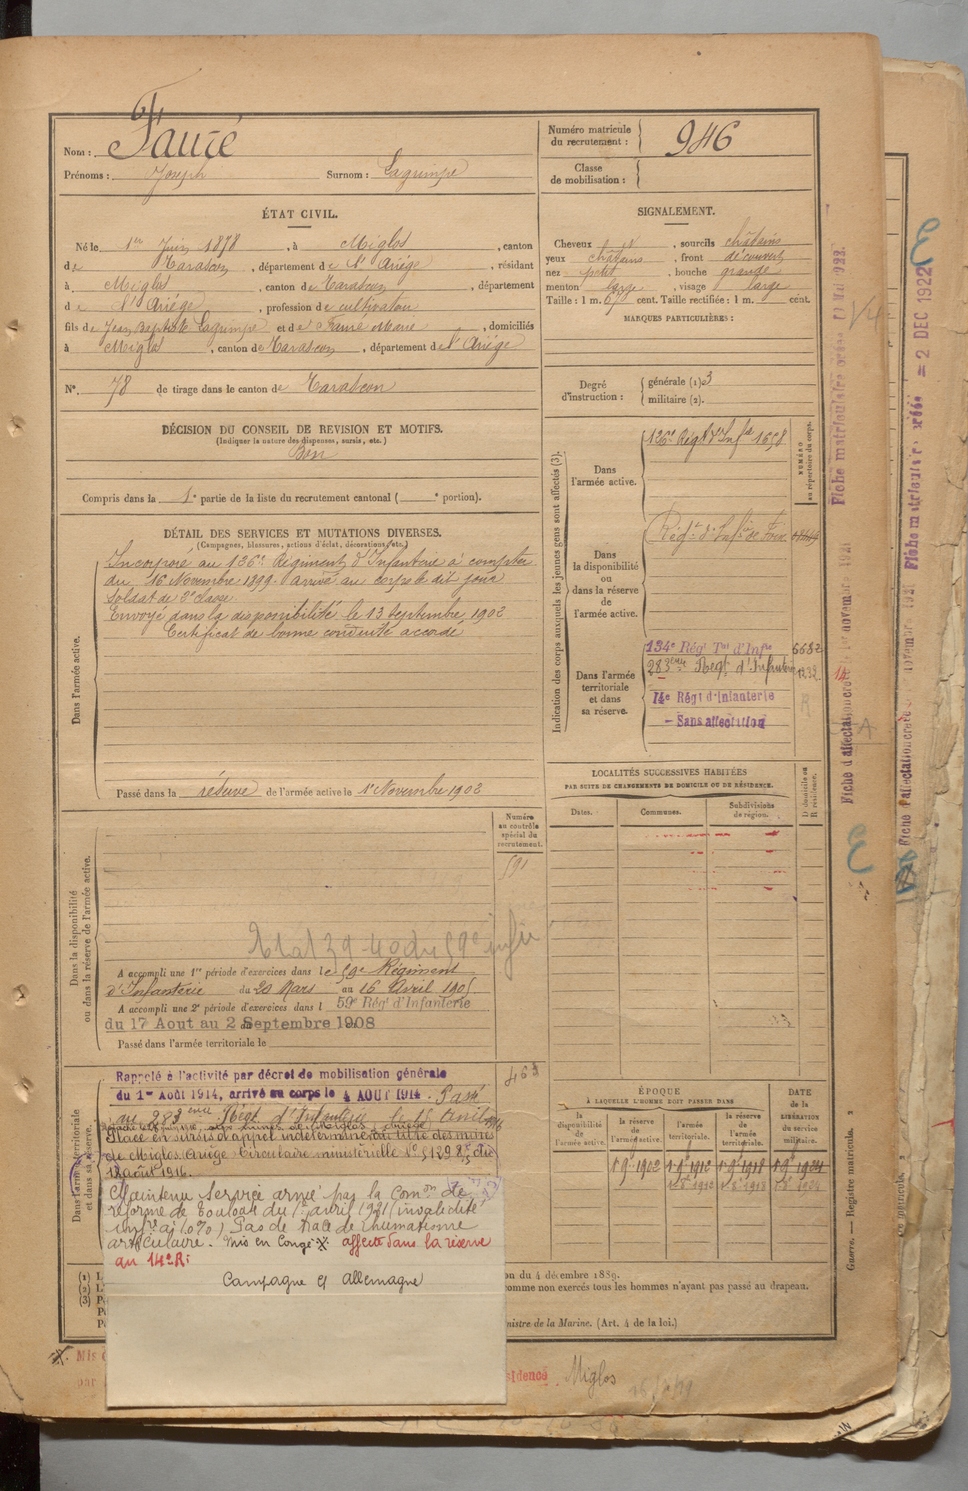 Nom : Fauré
Prénoms : Joseph Surnom : Lagrimpe
Numéro matricule du recrutement : 946
Classe de mobilisation :
ÉTAT CIVIL.
Né le 1er Juin 1878, à Miglos, canton
de Tarascon, département de l'Ariége, résidant
à Miglos, canton de Tarascon, département
de l'Ariége, profession de cultivateur
fils de Jean Baptiste Lagrimpe et de Faure Marie, domiciliés
à Miglos, canton de Tarascon, département de l'Ariége
N° 78 de tirage dans le canton de Tarascon
SIGNALEMENT.
Cheveux, sourcils châtains
yeux châtains, front découvert
nez petit, bouche grande
menton large, visage large
Taille : 1 m. 67 cent. Taille rectifiée : 1 m. cent.
MARQUES PARTICULIÈRES :
Degré d'instruction : générale (1). 3
militaire (2).
DÉCISION DU CONSEIL DE REVISION ET MOTIFS.
(Indiquer la nature des dispenses, sursis, etc.)
Bon
Compris dans la 1e partie de la liste du recrutement cantonal ( e portion).
DÉTAIL DES SERVICES ET MUTATIONS DIVERSES.
(Campagnes, blessures, actions d'éclat, décorations, etc.)
Dans l'armée active.
Incorporé au 126e Régiment d'Infanterie à compter
du 16 Novembre 1899. arrivé au corps le dit jour
Soldat de 2e classe
Envoyé dans la disponibilité le 13 Septembre 1902
Certificat de bonne conduite accordé
Passé dans la réserve de l'armée active le 1er Novembre 1902
Indication des corps auxquels les jeunes gens sont affectés (3).
NUMÉRO au répertoire du corps.
Dans l'armée active.
126e Régt d'Infie 1658
Dans la disponibilité ou dans la réserve de l'armée active.
Régt d'Infie de Foix
Dans l'armée territoriale et dans sa réserve.
134e Régt Tal d'Infie 6682
283eme Regt d'Infanterie
14e Régt d'Infanterie
- Sans affectation
LOCALITÉS SUCCESSIVES HABITÉES
PAR SUITE DE CHANGEMENTS DE DOMICILE OU DE RÉSIDENCE.
Dates.
Communes.
Subdivisions de région.
D domicile ou R résidence.
Dans la disponibilité ou dans la réserve de l'armée active.
Numéro au contrôle spécial du recrutement.
591
A accompli une 1re période d'exercices dans le 59e Régiment
d'Infanterie du 20 Mars au 16 Avril 1905
A accompli une 2e période d'exercices dans l 59e Régt d'Infanterie
du 17 Aout au 2 Septembre 1908
Passé dans l'armée territoriale le
Dans l'armée territoriale et dans sa réserve.
463
Rappelé à l'activité par décret de mobilisation générale
du 1er Août 1914, arrivé au corps le 4 AOUT 1914. Passé
au 283eme Régt d'Infanterie le 15 Avril 1916
Placé en sursis d'appel indéterminé au titre des mines
de Miglos Ariège Circulaire ministérielle N° 5129 8/5 du
18 août 1916.
Maintenu Service armé par la Comon de
réforme de Toulouse du 1er avril 1921 (invalidité
infre à 10%) Pas de trace de rhumatisme
articulaire. Mis en Congé X. affecté dans la réserve
au 14e R.I
Campagne Cs Allemagne
ÉPOQUE
A LAQUELLE L'HOMME DOIT PASSER DANS
la disponibilité de l'armée active.
la réserve de l'armée active.
l'armée territoriale.
la réserve de l'armée territoriale.
DATE de la LIBÉRATION du service militaire.
1er 9bre 1902 1er 9bre 1912 1er 9bre 1918 1er 9bre 1924
(1)
(2)
(3)
on du 4 décembre 1889.
comme non exercés tous les hommes n'ayant pas passé au drapeau.
nistre de la Marine. (Art. 4 de la loi.)
Guerre. — Registre matricule. 2
X. Mis
par
sidence Miglos
Fiche matriculaire
Fiche d'affectation créée
Fiche matriculaire créée = 2 DEC 1922